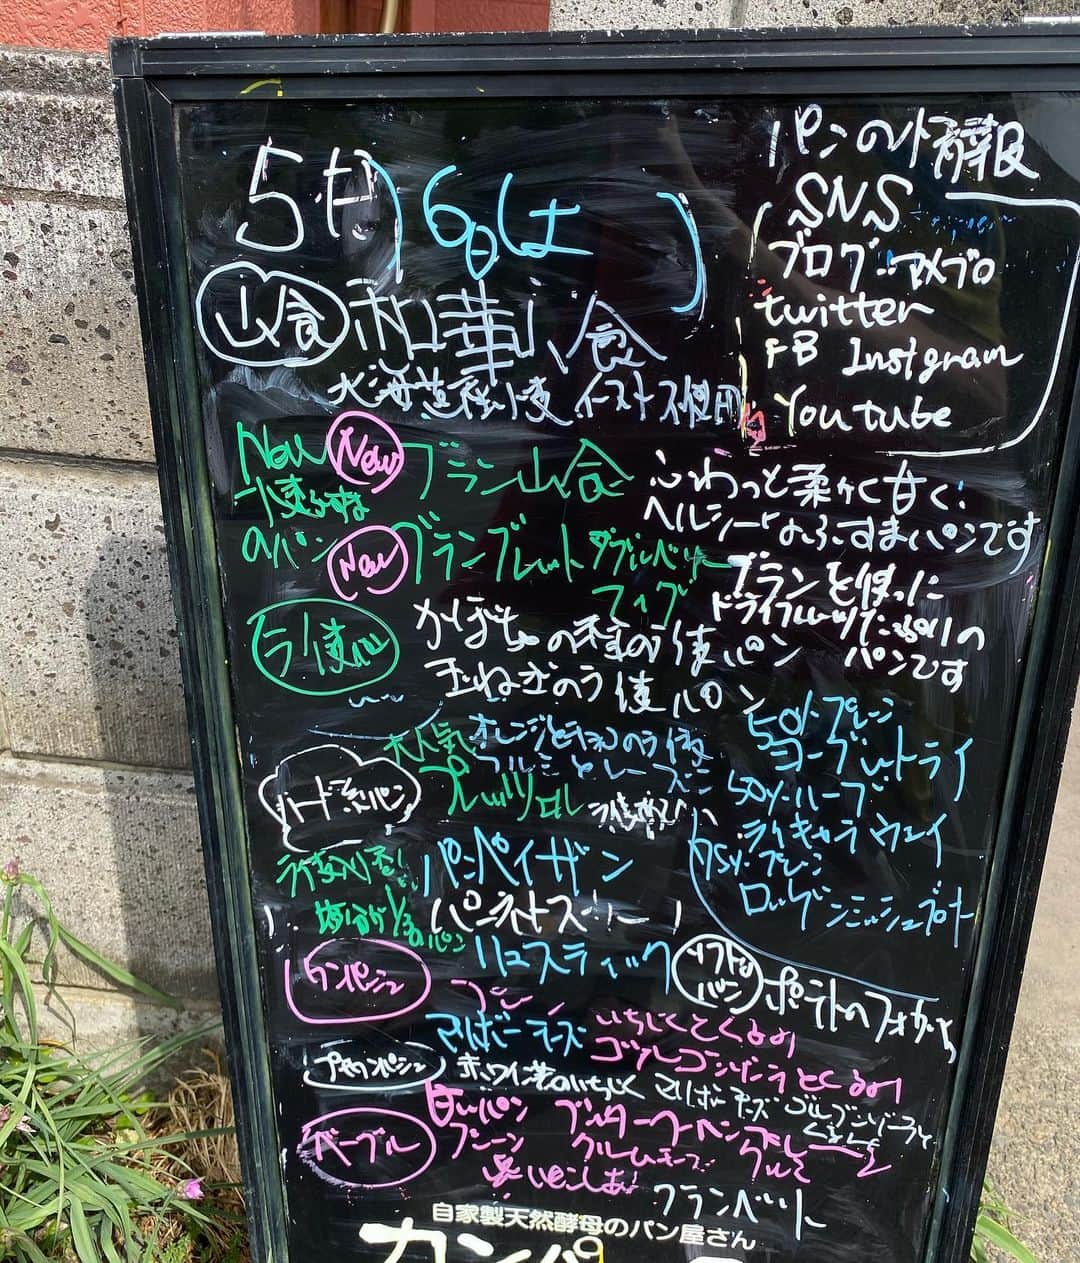 パンの情報
SNS
ブログ アメブロ
twitter
FB Instgram
Youtube
5月6日は
山食 和華山食
北海道産小麦 イースト不使用
New New ブラン山食
小麦ふすま
のパン
ふわっと柔かく甘く
ヘルシーなふすまパンです
New ブランブレット ダブルベリー
フィグ
ブランを使った
ドライフルーツたっぷりの
パンです
ライ麦パン かぼちゃの種のライ麦パン
玉ねぎのライ麦パン
大人気 オレンジとチョコのライ麦
クルミとレーズン
50%プレーン
ヨーグルトライ
50%ハーブ
ライキャラウェイ
75%プレーン
ロッゲンミッシュブロート
ハード系パン プレッツェル
ライ麦入り
塩分が1/3のパン
パンペイザン
パンオナチュール
リュスティック
ソフトなパン ポテトのフォカッチャ
カンパーニュ プレーン
マルボーチーズ いちじくとくるみ
ゴルゴンゾーラとくるみ
プチカンパーニュ 赤ワイン煮のいちじく マリボーチーズ ゴルゴンゾーラと
くるみ
ベーグル
プレーン クルミチーズ
クランベリー
自家製天然酵母のパン屋さん
カンパ